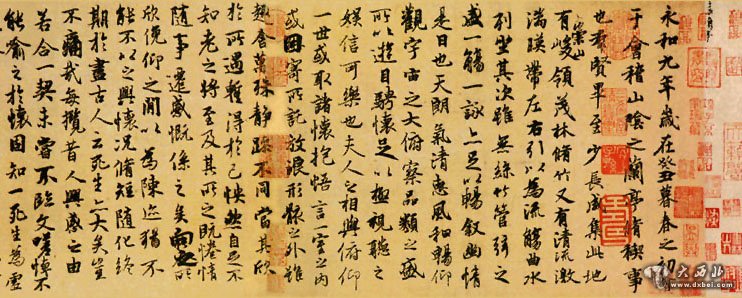 永和九年歲在癸丑暮春之初
于會稽山陰之蘭亭脩稧事
也群賢畢至少長咸集此地
有崇山峻領茂林脩竹又有清流激
湍暎帶左右引以為流觴曲水
列坐其次雖無絲竹管弦之
盛一觴一詠亦足以暢敘幽情
是日也天朗氣清惠風和暢仰
觀宇宙之大俯察品類之盛
所以遊目騁懷足以極視聽之
娛信可樂也夫人之相與俯仰
一世或取諸懷抱悟言一室之內
或因寄所託放浪形骸之外雖
趣舍萬殊靜躁不同當其欣
於所遇暫得於己怏然自足不
知老之將至及其所之既惓情
隨事遷感慨係之矣向之所
欣俛仰之閒以為陳迹猶不
能不以之興懷況脩短隨化終
期於盡古人云死生亦大矣豈
不痛哉每攬昔人興感之由
若合一契未嘗不臨文嗟悼不
能喻之於懷固知一死生為虛
大西北
www.dxbei.com